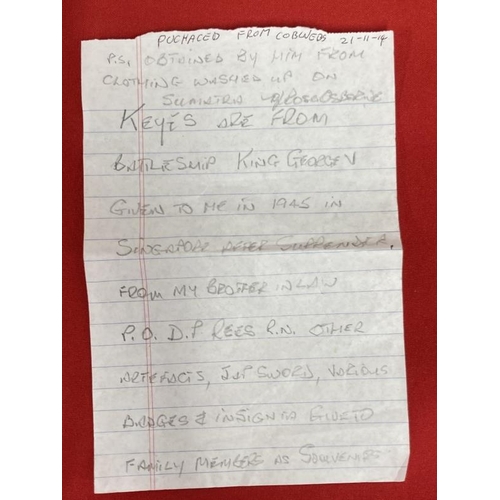 PUCHACED FROM COBWEBS 21-11-14
P.S. OBTAINED BY HIM FROM
CLOTHING WASHED UP ON
SUMATRA
KEYES ARE FROM
BATTLESHIP KING GEORGE V
GIVEN TO ME IN 1945 IN
SINGAPORE AFTER SURRENDER.
FROM MY BROTHER IN LAW
P.O. D.P REES R.N. OTHER
ARTEFACTS, JAP SWORD, VARIOUS
BADGES & INSIGNA GIVE TO
FAMILY MEMBERS AS SOUVENIRS